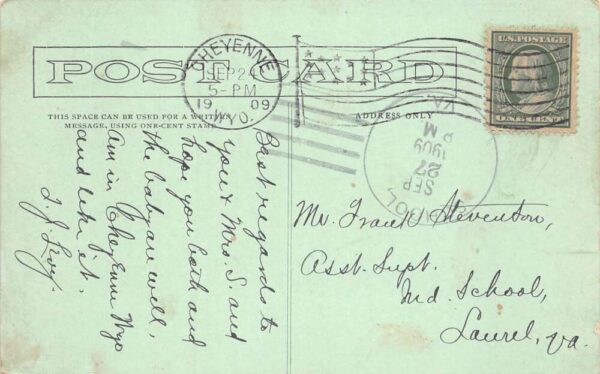 POST CARD
CHEYENNE
SEP 24
5-PM
1909
WYO.
U.S. POSTAGE
ONE CENT
THIS SPACE CAN BE USED FOR A WRITTEN
MESSAGE, USING ONE-CENT STAMP
ADDRESS ONLY
Best regards to
you & Mrs. S. and
hope you both and
the baby are well,
am in Cheyenne Wyo
and like it.
SEP
27
PM
1909
VA.
Mr. Frank Steventon,
Asst. Supt.
Ind. School,
Laurel, Va.